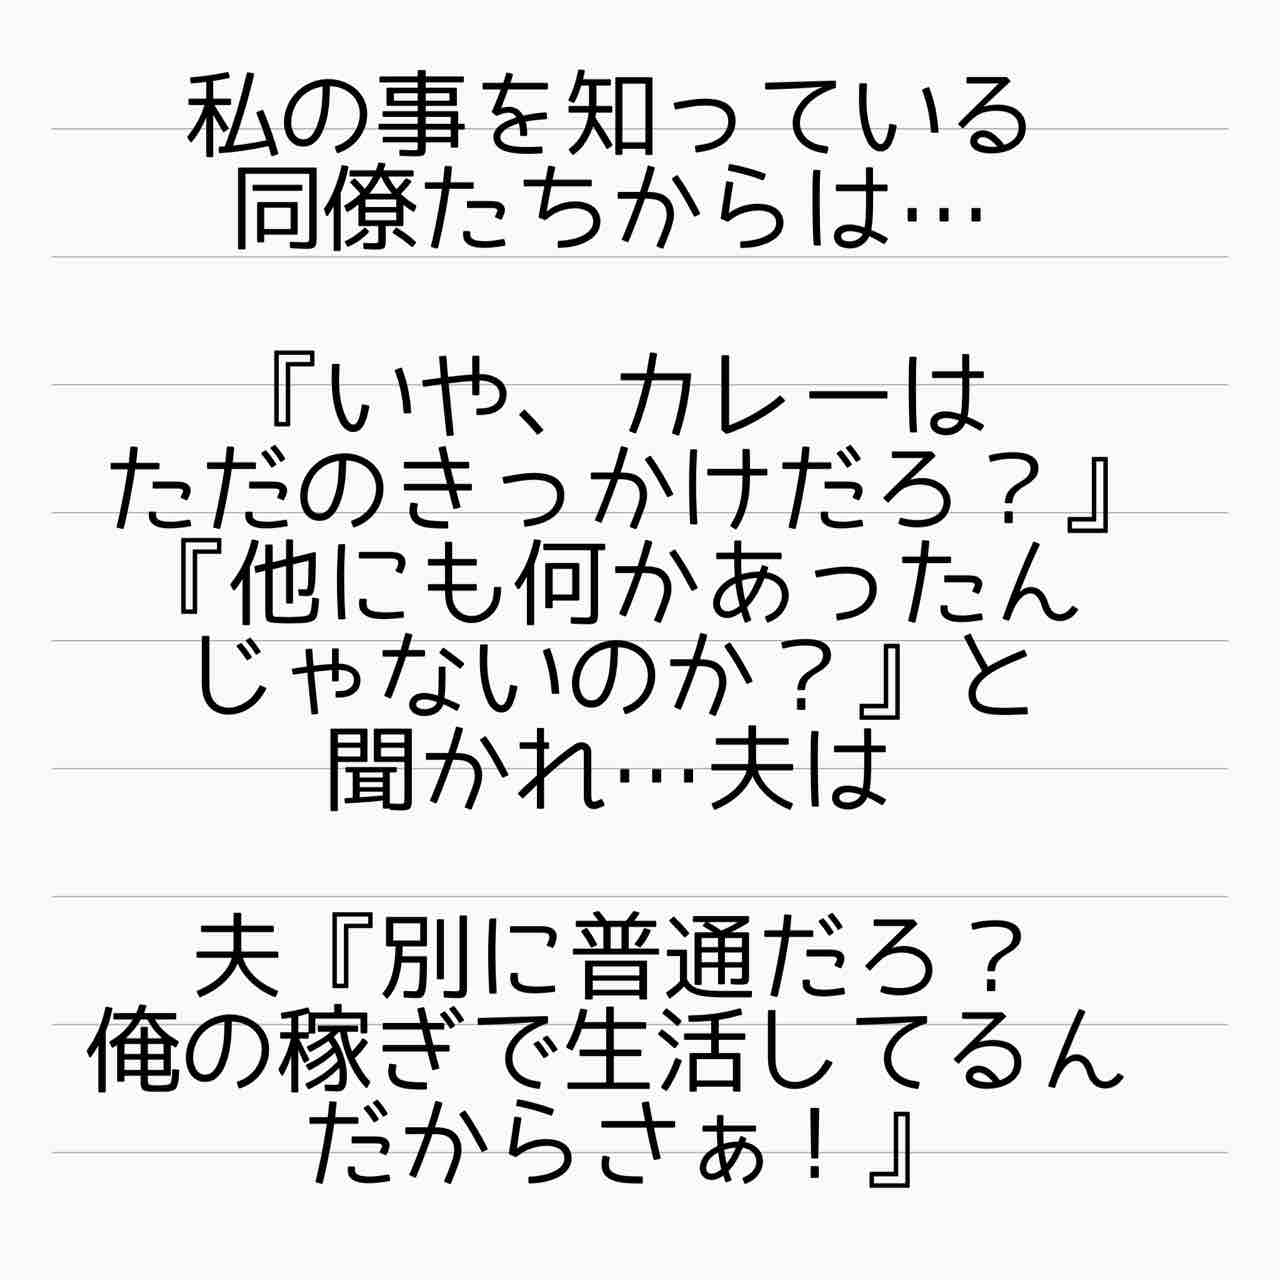 私の事を知っている
同僚たちからは…
『いや、カレーは
ただのきっかけだろ？』
『他にも何かあったん
じゃないのか？』と
聞かれ…夫は
夫『別に普通だろ？
俺の稼ぎで生活してるん
だからさぁ！』